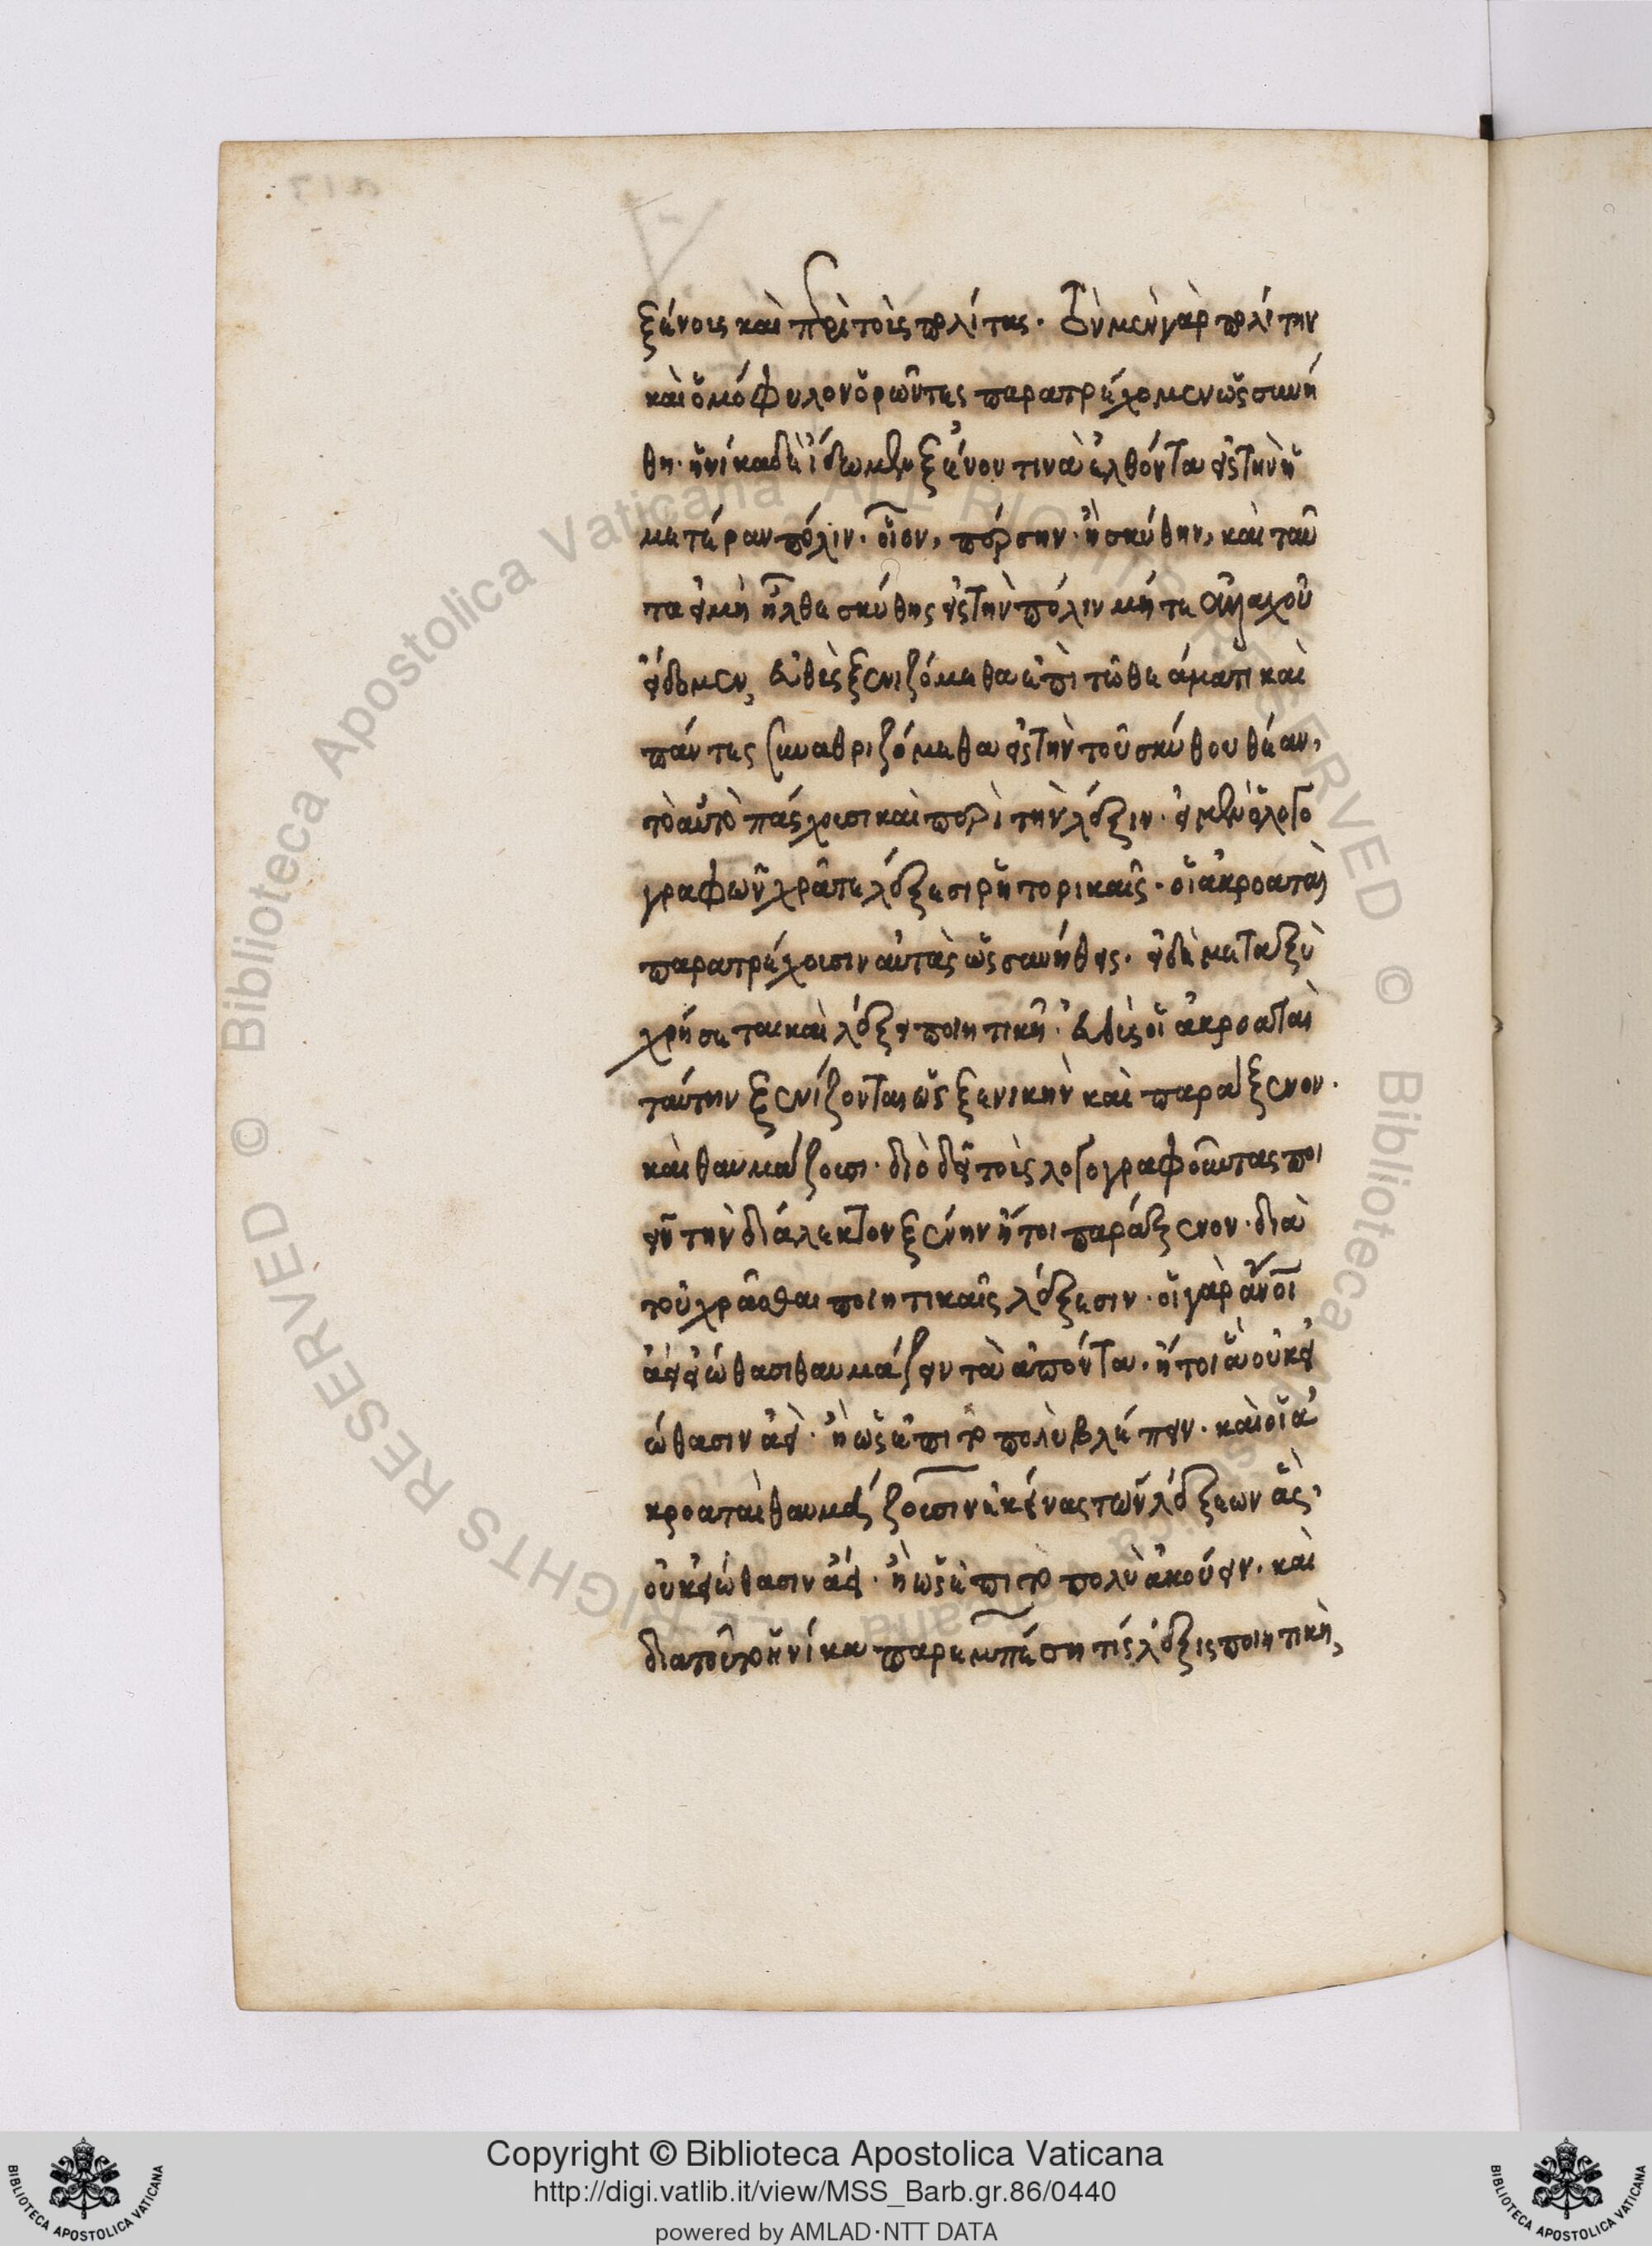 ξένους καὶ πρὸς τοὺς πολίτας· τὸν μὲν γὰρ πολίτην
καὶ ὁμόφυλον ὁρῶντες παρατρέχομεν ὡς συνή
θη· ἡνίκα δὲ ἴδωμεν ξένον τινὰ ἐλθόντα εἰς τὴν ἡ
μετέραν πόλιν· οἷον, πέρσην· ἢ σκύθην, καὶ ταῦ
τα εἰ μὴ ἦλθε σκύθης εἰς τὴν πόλιν μήτε ἀλλαχοῦ
εἴδομεν, εὐθὺς ξενιζόμεθα ἐπὶ τῷ θεάματι καὶ
πάντες συναθροιζόμεθα εἰς τὴν τοῦ σκύθου θέαν,
τὸ αὐτὸ πάσχουσι καὶ περὶ τὴν λέξιν· εἰ μὲν ὁ λογο
γραφῶν χρᾶται λέξεσι ῥητορικαῖς· οἱ ἀκροαταὶ
παρατρέχουσιν αὐτὰς ὡς συνήθεις· εἰ δὲ μεταξὺ
χρήσεται καὶ λέξει ποιητικῇ· εὐθὺς οἱ ἀκροαταὶ
ταύτην ξενίζονται ὡς ξενικὴν καὶ παράξενον·
καὶ θαυμάζουσι· διὸ δεῖ τοὺς λογογραφοῦντας ποι
εῖν τὴν διάλεκτον ξένην ἤτοι παράξενον· διὰ
τοῦ χρᾶσθαι ποιητικαῖς λέξεσιν· οἱ γὰρ ἄνοι
ἀεὶ εἰώθασι θαυμάζειν τὰ ἀπόντα· ἤτοι ἃ οὐκ εἰ
ώθασιν ἀεὶ· ἢ ὡς ἐπὶ τὸ πολὺ βλέπειν· καὶ οἱ ἀ
κροαταὶ θαυμάζουσιν ἐκείνας τῶν λέξεων ἃς,
οὐκ εἰώθασιν ἀεί· ἢ ὡς ἐπὶ τὸ πολὺ ἀκούειν· καὶ
διατοῦτο ἡνίκα παρεμπέση τίς λέξις ποιητικὴ,
Copyright © Biblioteca Apostolica Vaticana
http://digi.vatlib.it/view/MSS_Barb.gr.86/0440
powered by AMLAD·NTT DATA